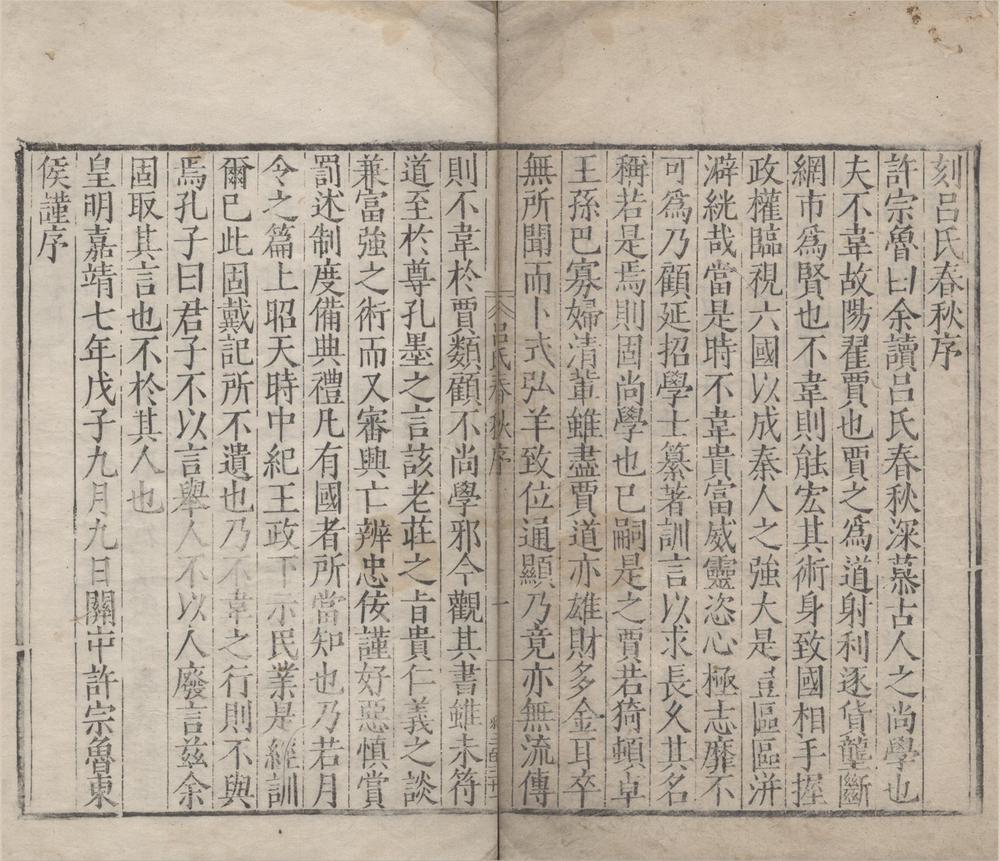 刻呂氏春秋序
許宗魯曰余讀呂氏春秋深慕古人之尚學也
夫不韋故陽翟賈也賈之爲道射利逐貨壟斷
網市爲賢也不韋則能宏其術身致國相手握
政權臨視六國以成秦人之強大是豈區區洴
澼絖哉當是時不韋貴富威靈恣心極志靡不
可爲乃顧延招學士纂著訓言以求長久其名
稱若是焉則固尚學也已嗣是之賈若猗頓卓
王孫巴寡婦清輩雖盡賈道亦雄財多金耳卒
無所聞而卜式弘羊致位通顯乃竟亦無流傳
呂氏春秋序
一
則不韋於賈類顧不尚學邪今觀其書雖未符
道至於尊孔墨之言該老莊之旨貴仁義之談
兼富強之術而又審興亡辨忠佞謹好惡慎賞
罰述制度備典禮凡有國者所當知也乃若月
令之篇上昭天時中紀王政下示民業是經訓
爾已此固戴記所不遺也乃不韋之行則不與
焉孔子曰君子不以言舉人不以人廢言茲余
固取其言也不於其人也
皇明嘉靖七年戊子九月九日關中許宗魯東
侯謹序